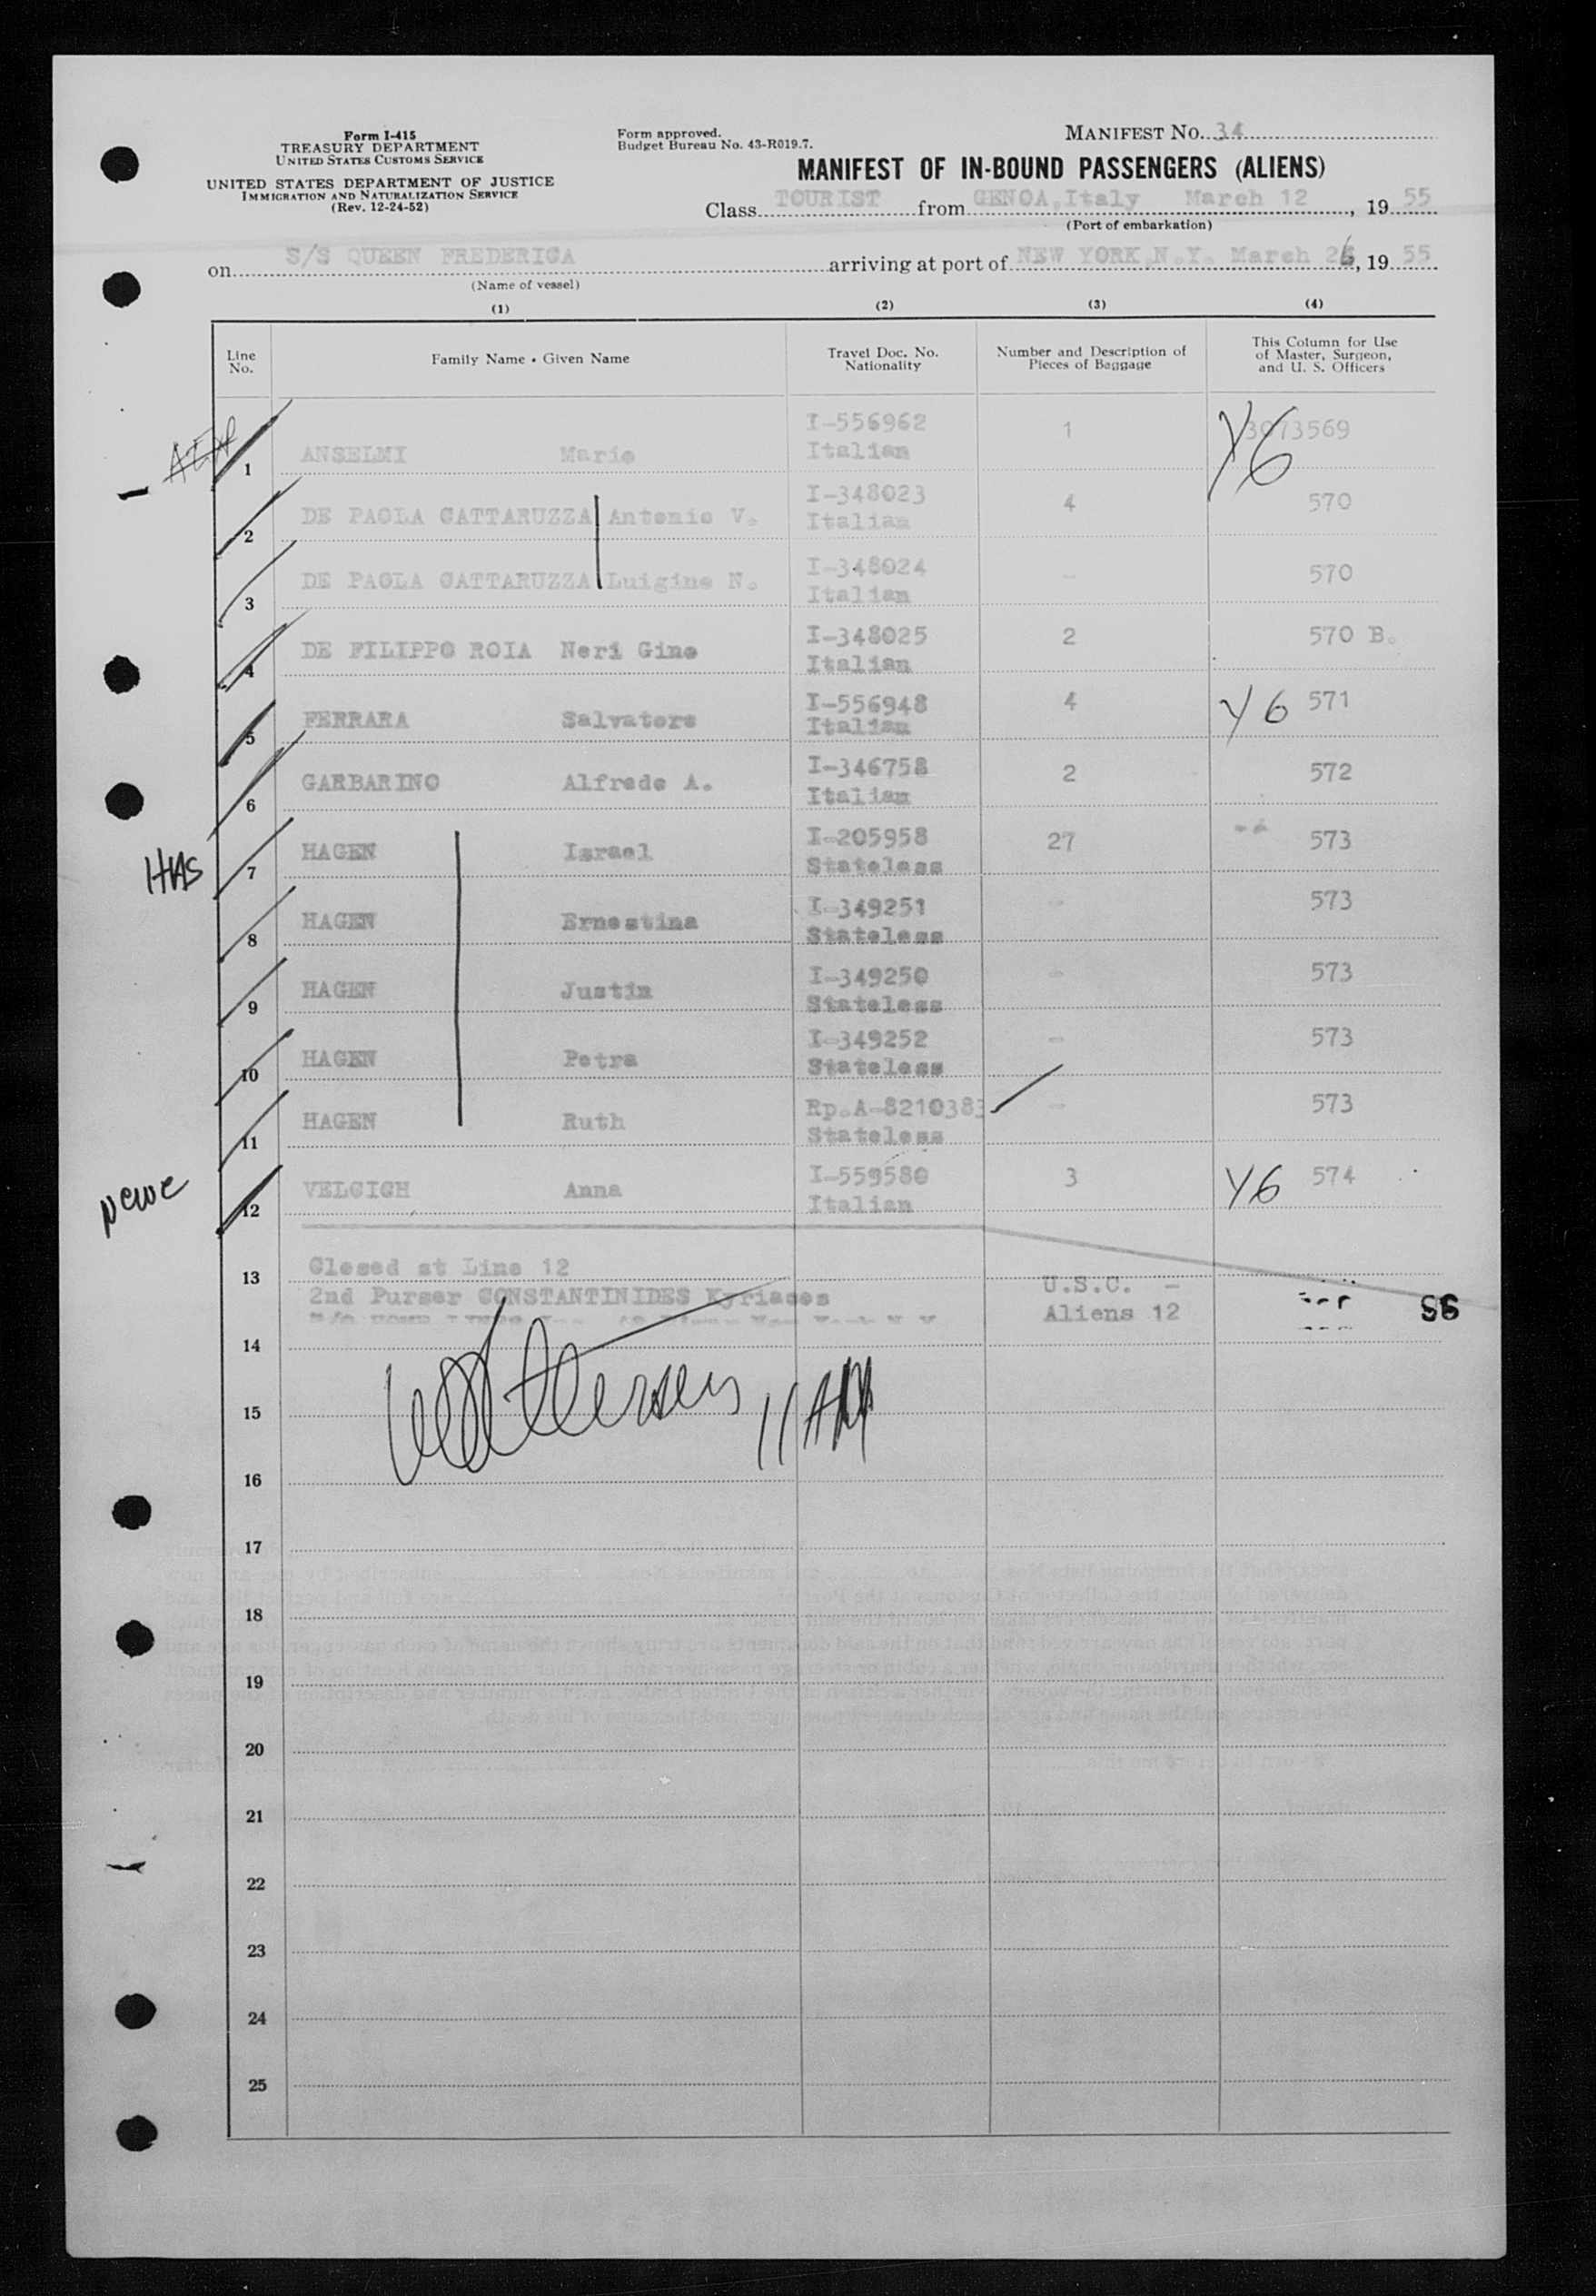 Form I-415
TREASURY DEPARTMENT
UNITED STATES CUSTOMS SERVICE
UNITED STATES DEPARTMENT OF JUSTICE
IMMIGRATION AND NATURALIZATION SERVICE
(Rev. 12-24-52)
Form approved.
Budget Bureau No. 43-R019.7.
MANIFEST No. 34
MANIFEST OF IN-BOUND PASSENGERS (ALIENS)
Class TOURIST from GENOA, Italy March 12, 19 55
(Port of embarkation)
on S/S QUEEN FREDERICA arriving at port of NEW YORK, N.Y. March 26, 19 55
(Name of vessel)
(1) (2) (3) (4)
Line No. Family Name • Given Name Travel Doc. No. Nationality Number and Description of Pieces of Baggage This Column for Use of Master, Surgeon, and U. S. Officers
1 ANSELMI Mario I-556962 Italian 1 3073569 Y6
2 DE PAOLA CATTARUZZA Antonio V. I-348023 Italian 4 570
3 DE PAOLA CATTARUZZA Luigina N. I-348024 Italian - 570
4 DE FILIPPO ROIA Neri Gino I-348025 Italian 2 570 B.
5 FERRARA Salvatore I-556948 Italian 4 Y6 571
6 GARBARINO Alfredo A. I-346758 Italian 2 572
HIAS 7 HAGEN Israel I-205958 Stateless 27 573
8 HAGEN Ernestina I-349251 Stateless - 573
9 HAGEN Justin I-349250 Stateless - 573
10 HAGEN Petra I-349252 Stateless - 573
11 HAGEN Ruth Rp.A-8210383 Stateless - 573
NCWC 12 VELCICH Anna I-559580 Italian 3 Y6 574
13 Closed at Line 12 U.S.C. -
2nd Purser CONSTANTINIDES Kyriacos Aliens 12
14
15 11 AM
16
17
18
19
20
21
22
23
24
25